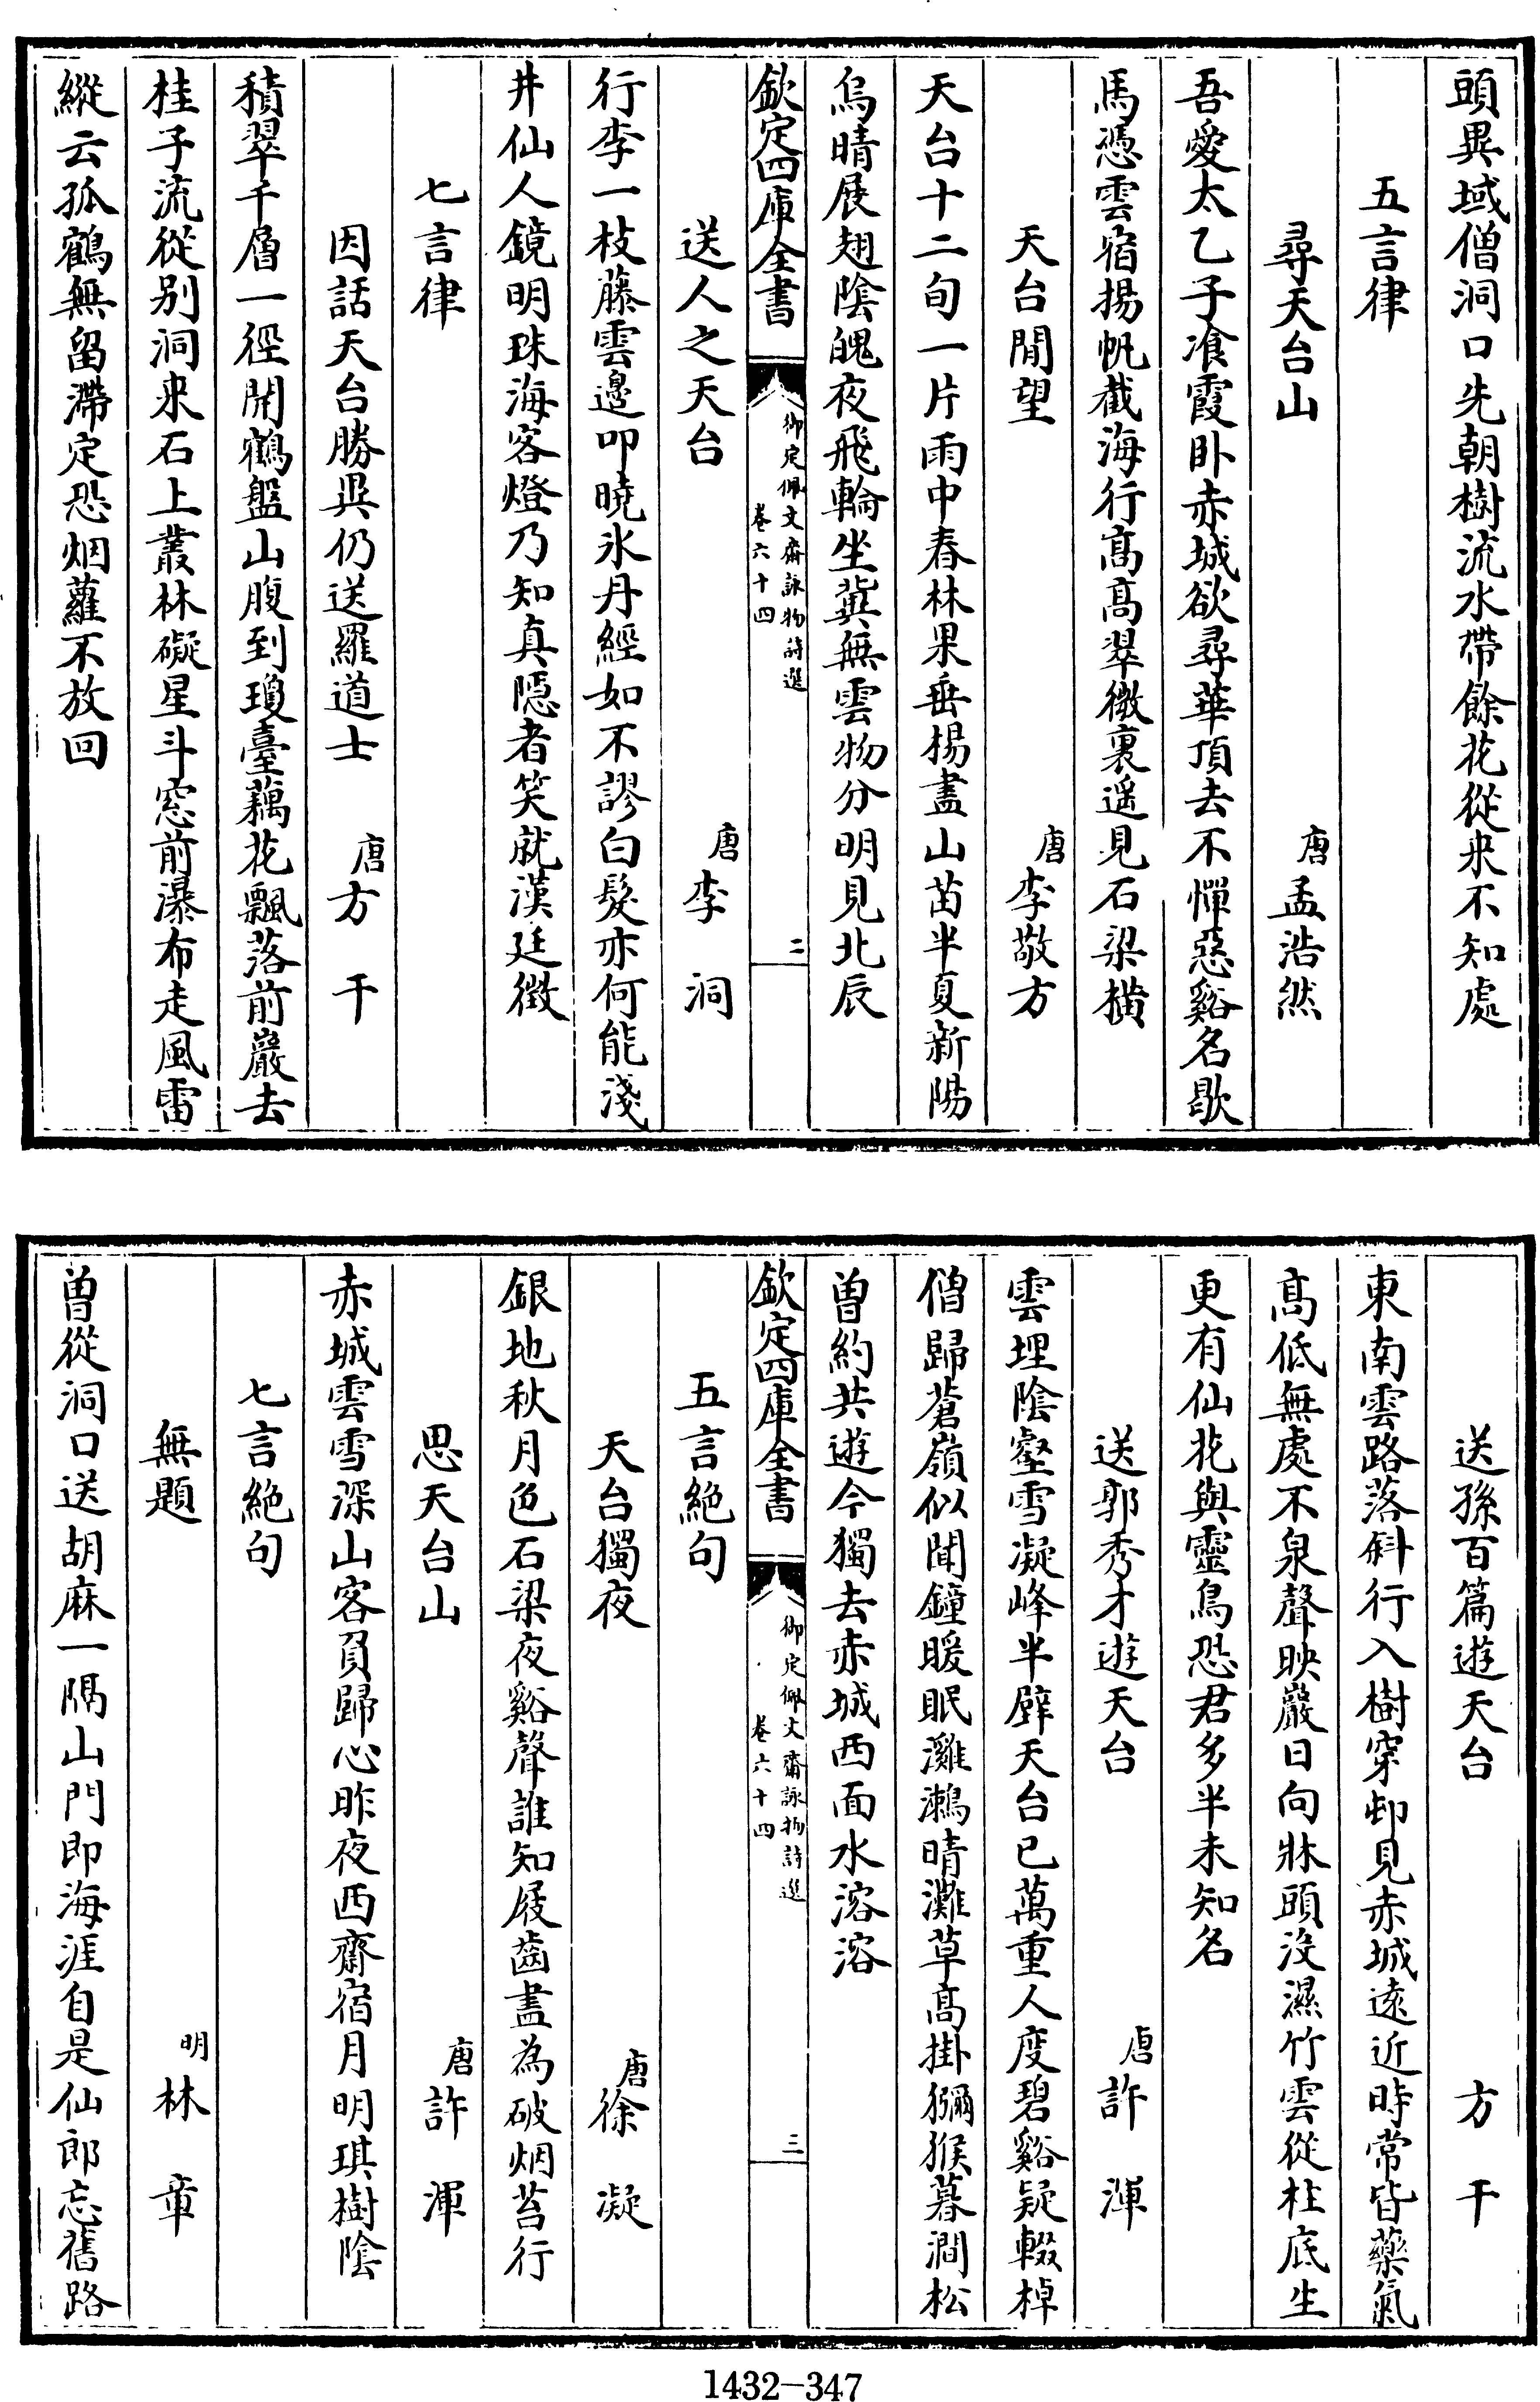 頭異域僧洞口先朝樹流水帶餘花從来不知處
五言律
尋天台山 唐孟浩然
吾愛太乙子飡霞卧赤城欲尋華頂去不憚惡谿名歇
馬憑雲宿揚帆截海行髙髙翠微裏遥見石梁横
天台閒望 唐李敬方
天台十二旬一片雨中春林果垂楊盡山苗半夏新陽
烏晴展翅陰魄夜飛輪坐冀無雲物分明見北辰
欽定四庫全書 御定佩文齋詠物詩選 卷六十四 二
送人之天台 唐李洞
行李一枝藤雲邊叩曉氷丹經如不謬白髮亦何能淺
井仙人鏡明珠海客燈乃知真隱者笑就漢廷徴
七言律
因話天台勝異仍送羅道士 唐方干
積翠千層一徑開鶴盤山腹到瓊臺藕花飄落前巖去
桂子流從别洞来石上叢林礙星斗窓前瀑布走風雷
縱云孤鶴無留滯定恐烟蘿不放回
送孫百篇遊天台 方干
東南雲路落斜行入樹穿邨見赤城遠近時常皆藥氣
髙低無處不泉聲映巖日向牀頭沒濕竹雲從柱底生
更有仙花與靈鳥恐君多半未知名
送郭秀才遊天台 唐許渾
雲埋陰壑雪凝峰半壁天台已萬重人度碧谿疑輟棹
僧歸蒼嶺似聞鐘暖眠㶉鶒晴灘草髙掛獼猴暮澗松
曽約共遊今獨去赤城西面水溶溶
欽定四庫全書 御定佩文齋詠物詩選 卷六十四 三
五言絶句
天台獨夜 唐徐凝
銀地秋月色石梁夜谿聲誰知屐齒盡為破烟苔行
思天台山 唐許渾
赤城雲雪深山客負歸心昨夜西齋宿月明琪樹陰
七言絶句
無題 明林章
曽從洞口送胡麻一隔山門即海涯自是仙郎忘舊路
1432-347